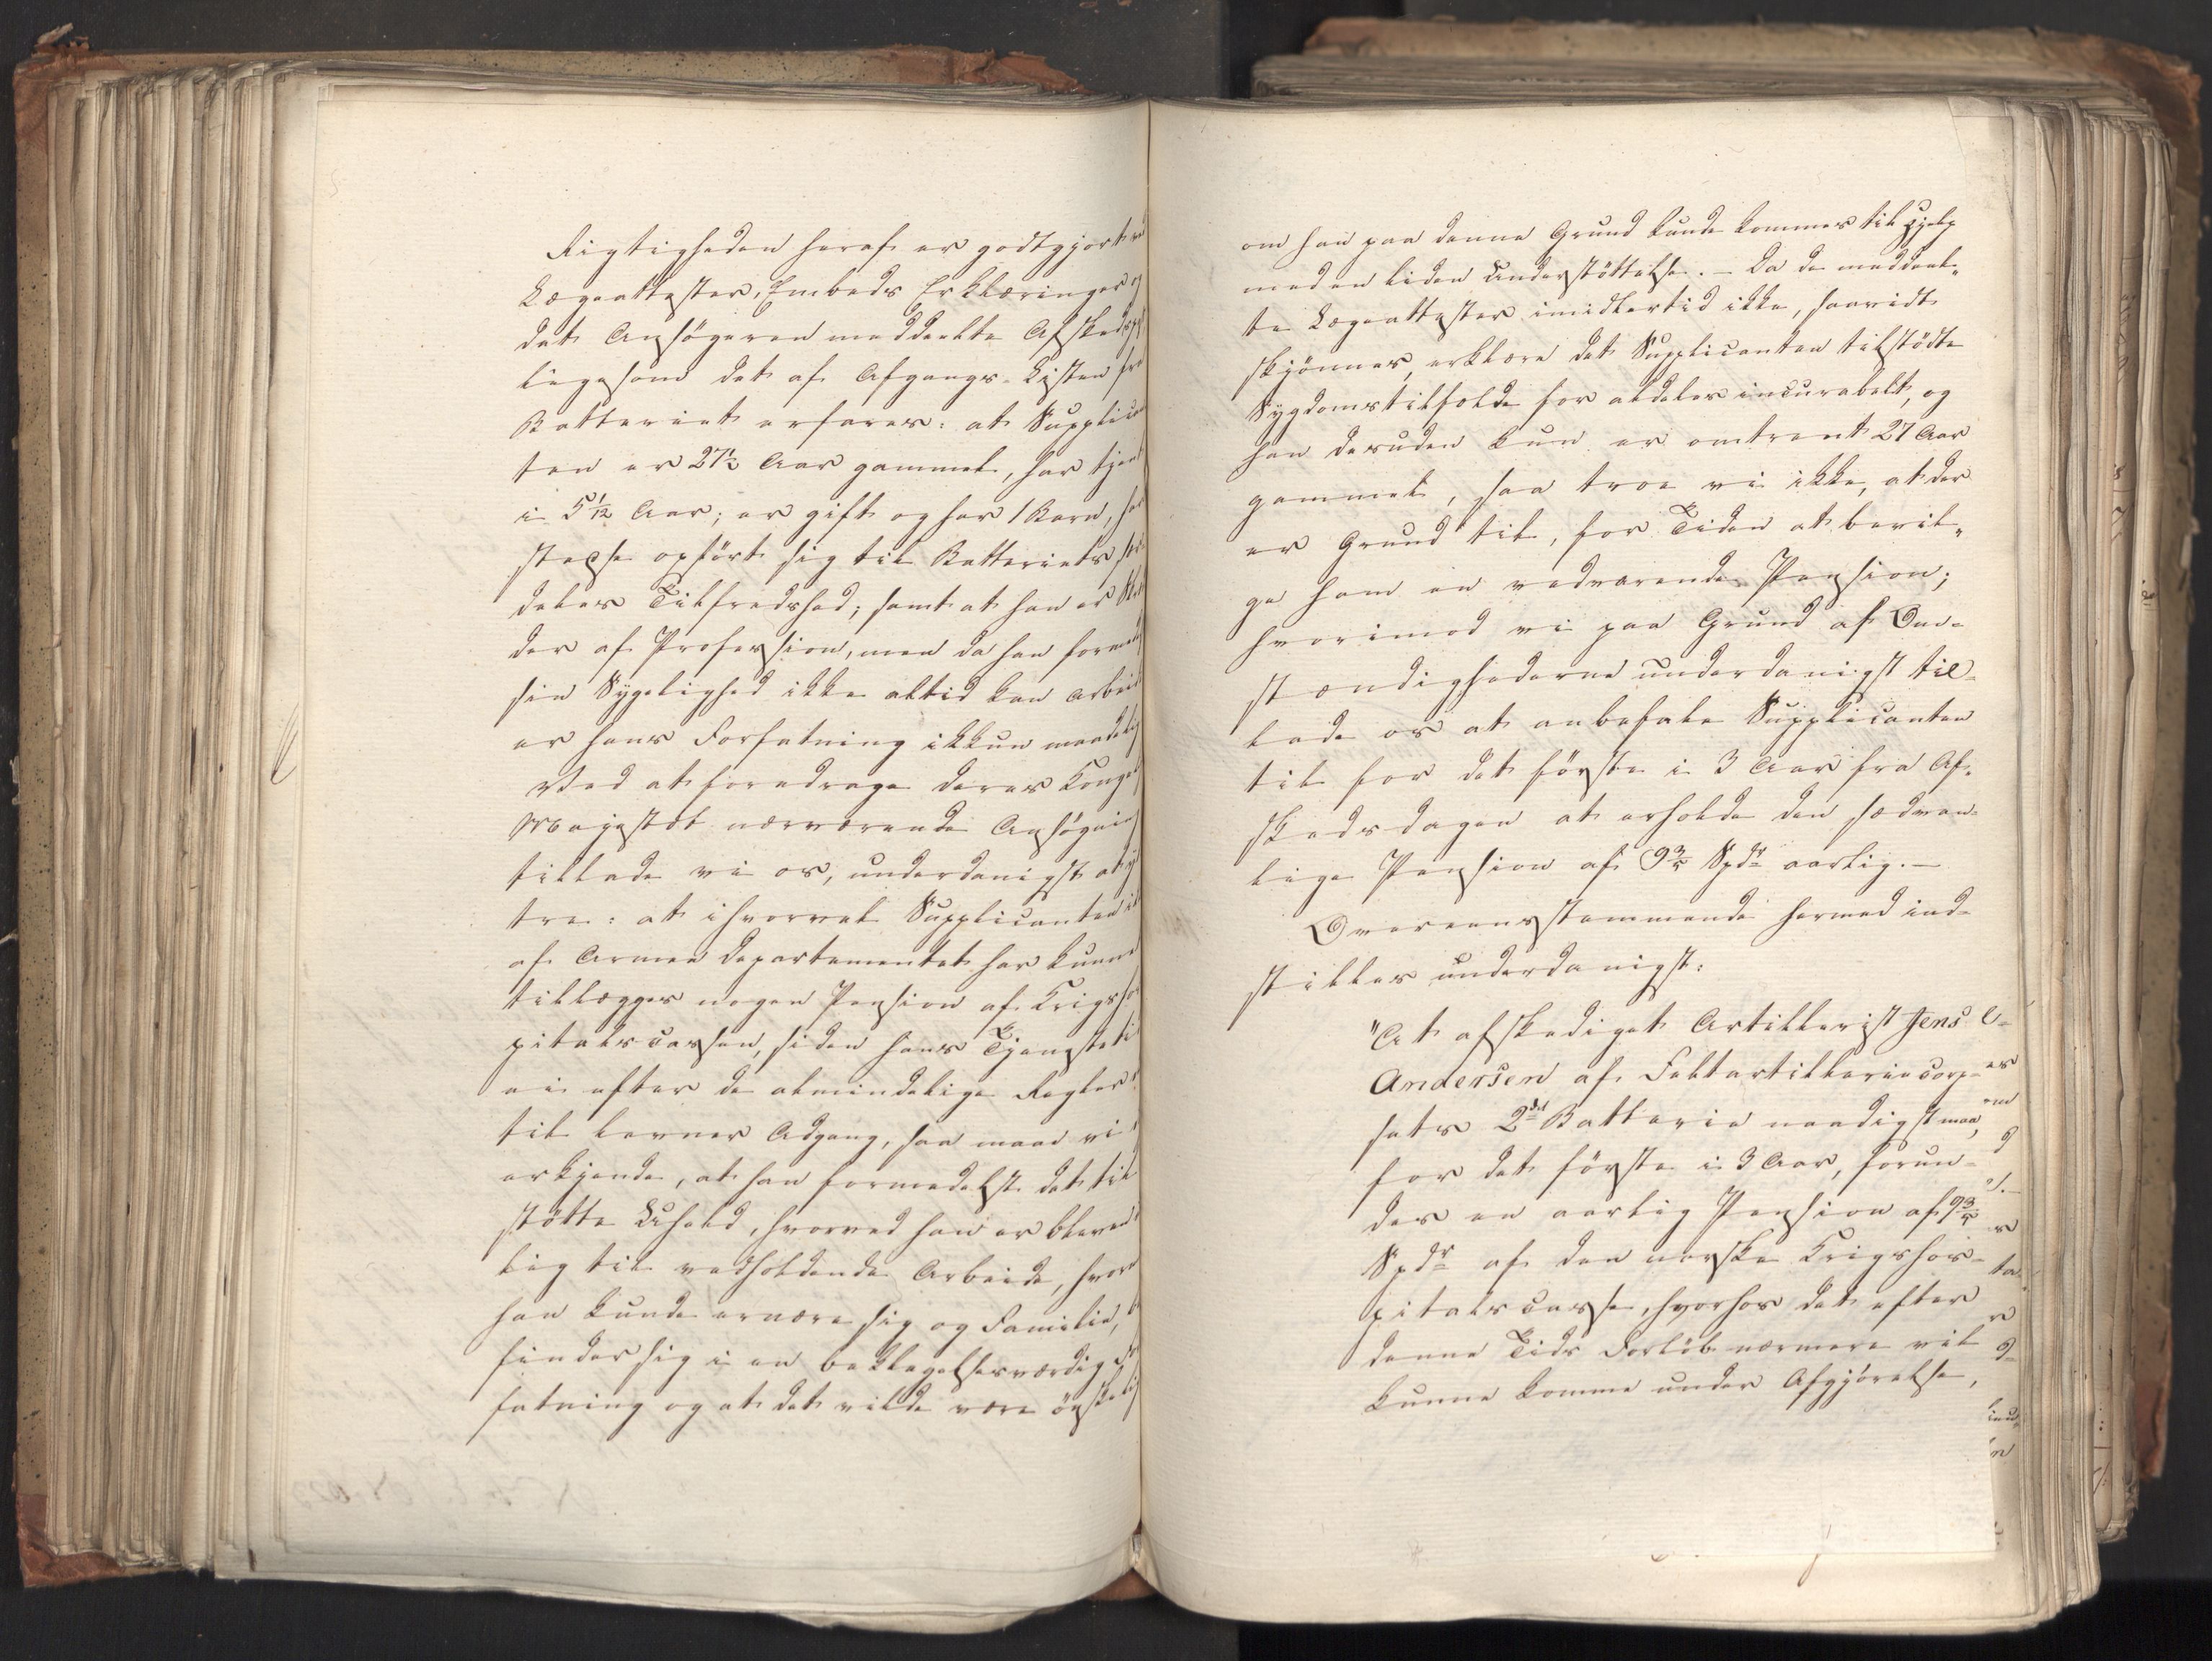 Rigtigheden heraf er godtgjort ved
Lægeattester, Embeds Erklæringer og
det Ansøgeren meddeelte Afskedspas
ligesom det af Afgangs-Listen fra
Batteriet erfares: at Supplican
ten er 27½ Aar gammel, har tjent
i 5 1/12 Aar; er gift og har 1 Barn, har
stedse opført sig til Batteriets sær-
deles Tilfredshed; samt at han er
der af Profession, men da han formedelst
sin Sygelighed ikke altid kan arbeide
er hans Forfatning ikkun maadelig
Ved at foredrage Deres Kongelige
Majestæt nærværende Ansøgning
tillade vi os, underdanigst at yt
tre: at ihvorvel Supplicanten ik
af Armee Departementet har kunne
tillægges nogen Pension af Krigshos
pitalscassen, siden hans Tjenesteti
ei efter de almindelige Regler
til levner Adgang, saa maae vi
erkjende, at han formedelst det til
stötte Uheld, hvorved han er bleven
lig til vedholdende Arbeide, hvor
han kunde ernære sig og Familie,
finder sig i en beklagelsesværdig
fatning og at det vilde være önskelig
om han paa denne Grund kunde kommes til Hjelp
med en liden Understöttelse. – Da de meddeel-
te Lægeattester imidlertid ikke, saavidt
skjönnes, erklære det Supplicanten tilstödte
Sygdomstilfælde for aldeles incurabelt, og
han desuden kun er omtrent 27 Aar
gammel, saa troe vi ikke, at der
er Grund til, for Tiden at bevil-
ge ham en vedvarende Pension;
hvorimod vi paa Grund af Om-
stændighederne underdanigst til-
lade os at anbefale Supplicanten
til for det förste i 3 Aar fra Af-
skedsdagen at erholde den sædvan-
lige Pension af 9 3/5 Spdr aarlig. –
Overeensstemmende hermed ind-
stilles underdanigst:
"At afskediget Artillerist Jens
Andersen af Feltartilleriecorp-
sets 2det Batterie naadigst maa,
for det förste i 3 Aar, forun-
des en aarlig Pension af 9 3/5
Spdr af den norske Krigshos-
pitalscasse, hvorhos det efter
denne Tids Forlöb nærmere vil
kunne komme under Afgjörelse,